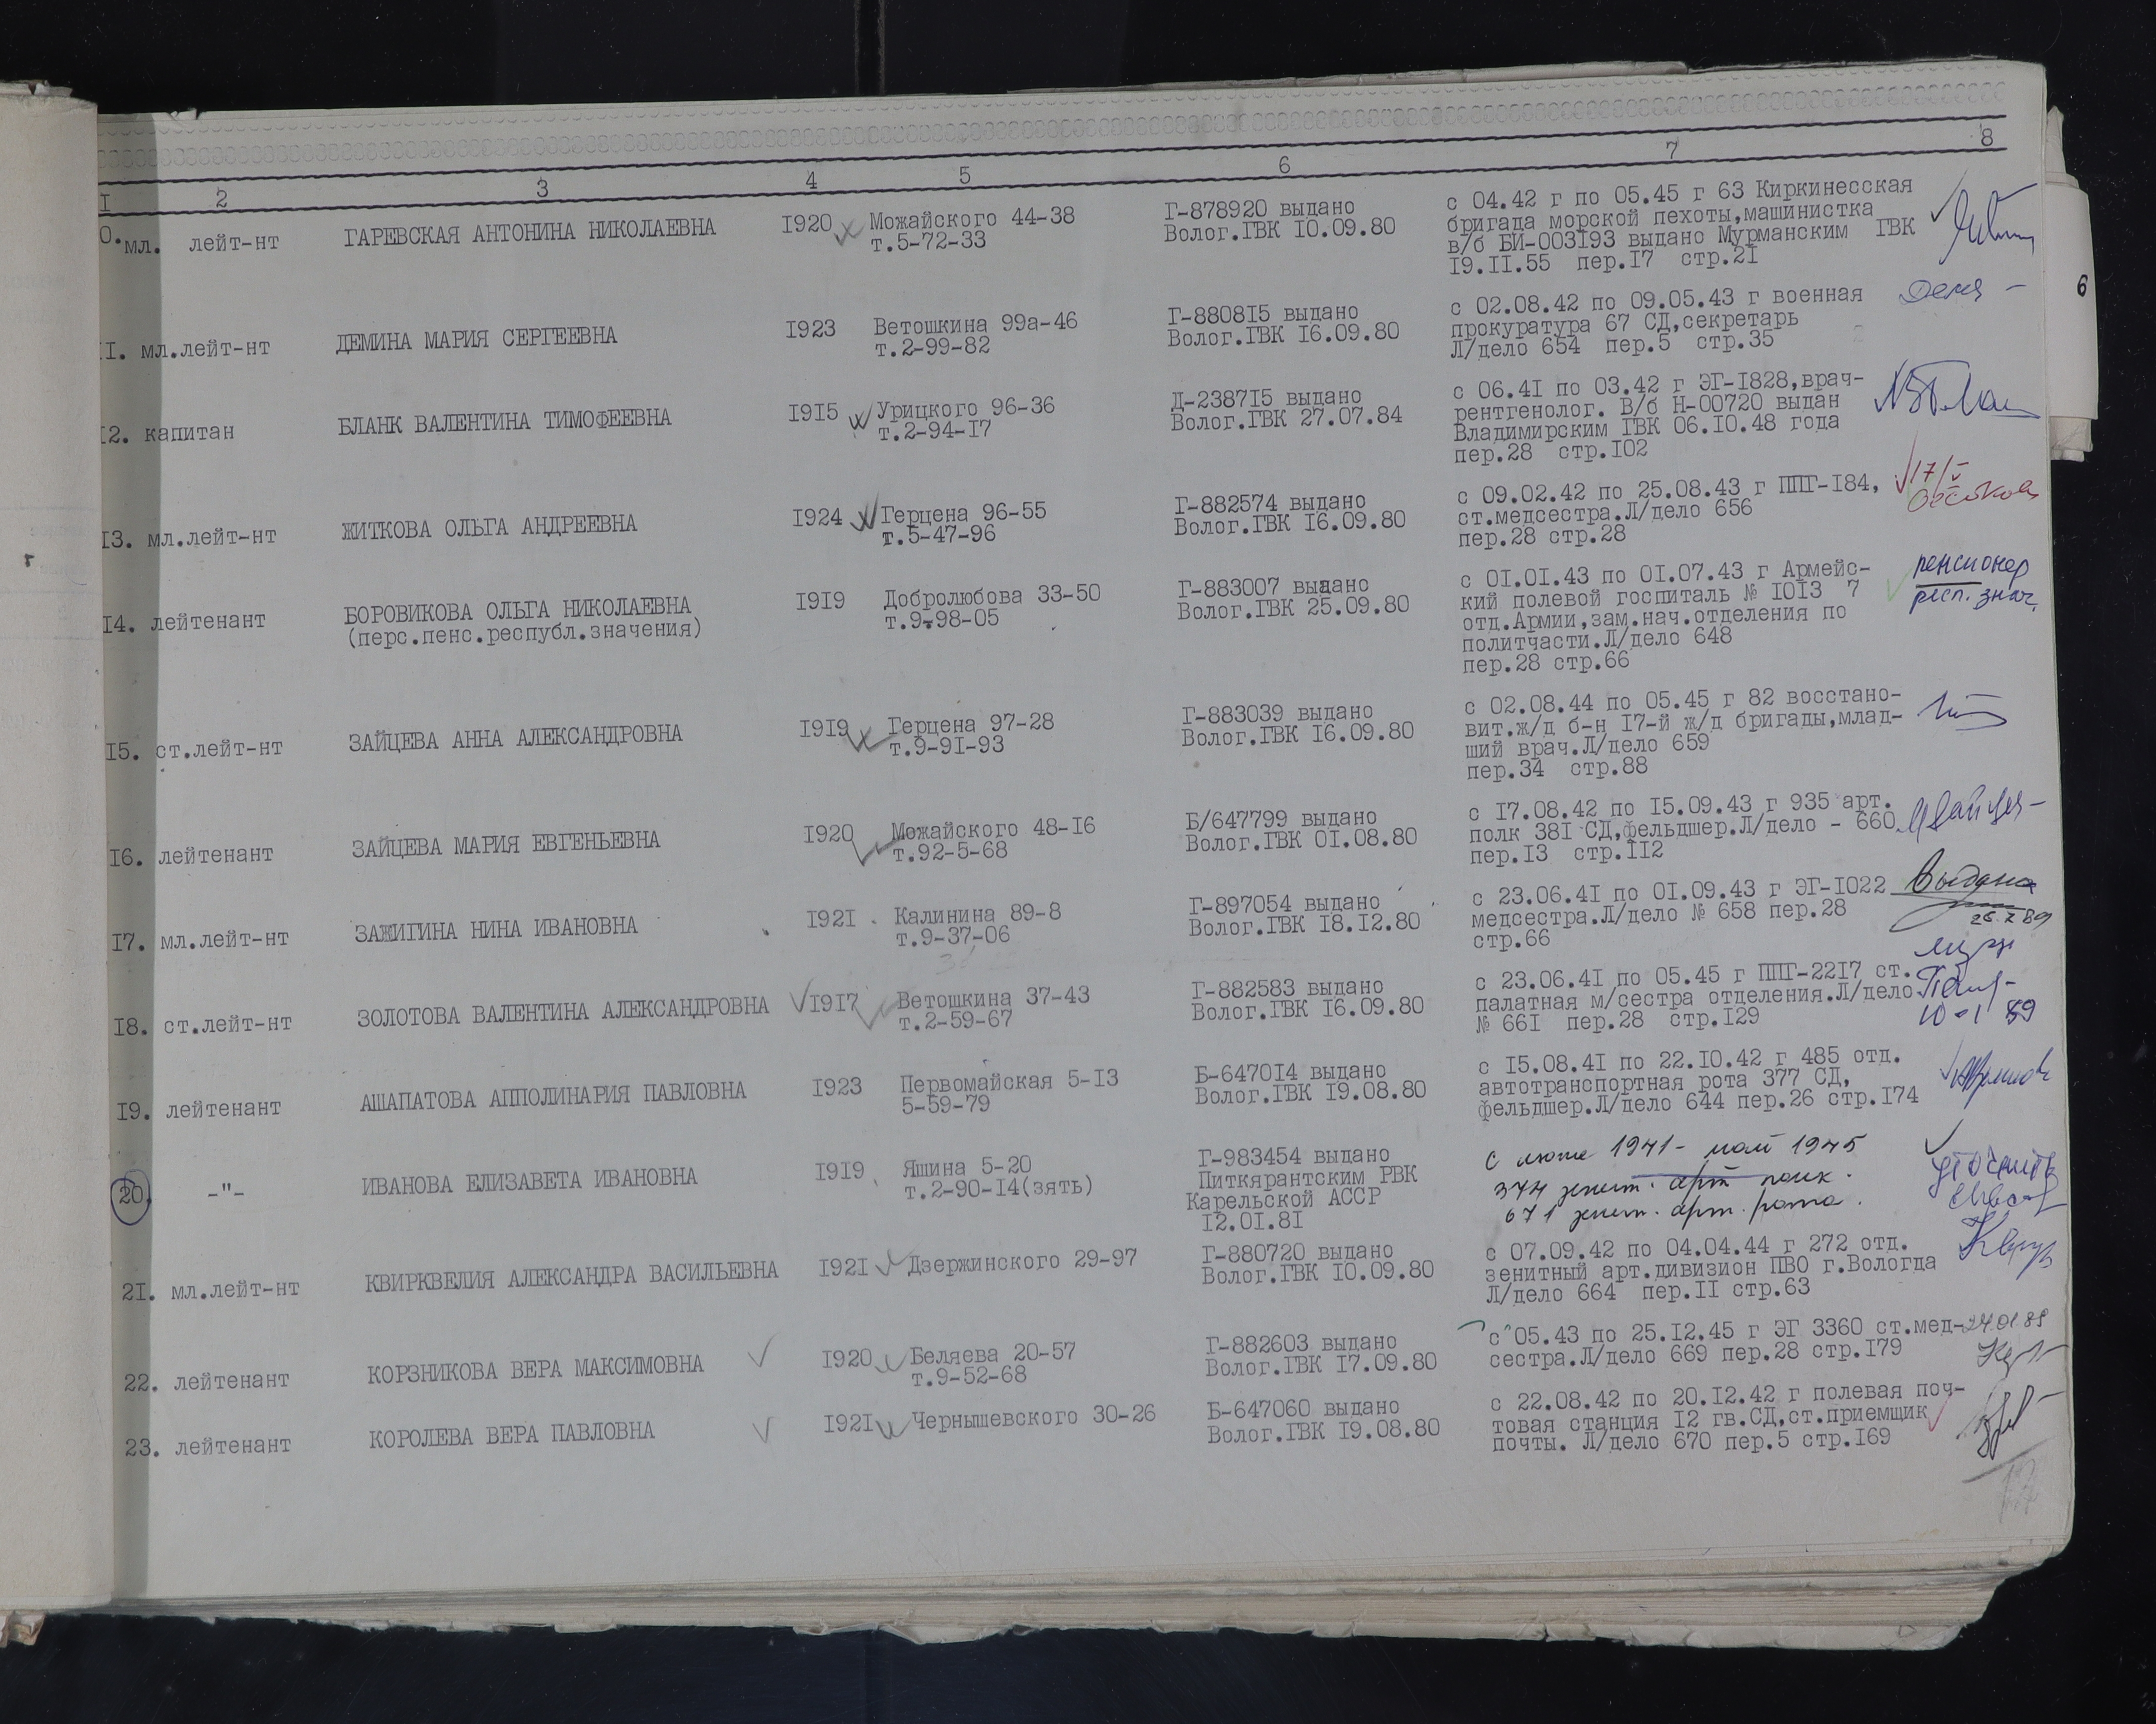 I 2 3 4 5 6 7 8
6
0. мл. лейт-нт ГАРЕВСКАЯ АНТОНИНА НИКОЛАЕВНА I920 Можайского 44-38 Г-878920 выдано с 04.42 г по 05.45 г 63 Киркинесская
т.5-72-33 Волог.ГВК I0.09.80 бригада морской пехоты,машинистка
в/б БИ-003I93 выдано Мурманским ГВК
I9.II.55 пер.I7 стр.2I
II. мл.лейт-нт ДЕМИНА МАРИЯ СЕРГЕЕВНА I923 Ветошкина 99а-46 Г-8808I5 выдано с 02.08.42 по 09.05.43 г военная
т.2-99-82 Волог.ГВК I6.09.80 прокуратура 67 СД,секретарь
Л/дело 654 пер.5 стр.35
I2. капитан БЛАНК ВАЛЕНТИНА ТИМОФЕЕВНА I9I5 Урицкого 96-36 Д-2387I5 выдано с 06.4I по 03.42 г ЭГ-I828,врач-
т.2-94-I7 Волог.ГВК 27.07.84 рентгенолог. В/б Н-00720 выдан
Владимирским ГВК 06.I0.48 года
пер.28 стр.I02
I3. мл.лейт-нт ЖИТКОВА ОЛЬГА АНДРЕЕВНА I924 Герцена 96-55 Г-882574 выдано с 09.02.42 по 25.08.43 г ППГ-I84, 17/V
т.5-47-96 Волог.ГВК I6.09.80 ст.медсестра.Л/дело 656
пер.28 стр.28
I4. лейтенант БОРОВИКОВА ОЛЬГА НИКОЛАЕВНА I9I9 Добролюбова 33-50 Г-883007 выдано с 0I.0I.43 по 0I.07.43 г Армейс- пенсионер
(перс.пенс.республ.значения) т.9-98-05 Волог.ГВК 25.09.80 кий полевой госпиталь № I0I3 7 респ. знач.
отд.Армии,зам.нач.отделения по
политчасти.Л/дело 648
пер.28 стр.66
I5. ст.лейт-нт ЗАЙЦЕВА АННА АЛЕКСАНДРОВНА I9I9 Герцена 97-28 Г-883039 выдано с 02.08.44 по 05.45 г 82 восстано-
т.9-9I-93 Волог.ГВК I6.09.80 вит.ж/д б-н I7-й ж/д бригады,млад-
ший врач.Л/дело 659
пер.34 стр.88
I6. лейтенант ЗАЙЦЕВА МАРИЯ ЕВГЕНЬЕВНА I920 Можайского 48-I6 Б/647799 выдано с I7.08.42 по I5.09.43 г 935 арт.
т.92-5-68 Волог.ГВК 0I.08.80 полк 38I СД,фельдшер.Л/дело - 660
пер.I3 стр.II2
I7. мл.лейт-нт ЗАЖИГИНА НИНА ИВАНОВНА I92I Калинина 89-8 Г-897054 выдано с 23.06.4I по 0I.09.43 г ЭГ-I022 Выдано
т.9-37-06 Волог.ГВК I8.I2.80 медсестра.Л/дело № 658 пер.28
стр.66
I8. ст.лейт-нт ЗОЛОТОВА ВАЛЕНТИНА АЛЕКСАНДРОВНА I9I7 Ветошкина 37-43 Г-882583 выдано с 23.06.4I по 05.45 г ППГ-22I7 ст.
т.2-59-67 Волог.ГВК I6.09.80 палатная м/сестра отделения.Л/дело
№ 66I пер.28 стр.I29
I9. лейтенант АШАПАТОВА АППОЛИНАРИЯ ПАВЛОВНА I923 Первомайская 5-I3 Б-6470I4 выдано с I5.08.4I по 22.I0.42 г 485 отд.
5-59-79 Волог.ГВК I9.08.80 автотранспортная рота 377 СД,
фельдшер.Л/дело 644 пер.26 стр.I74
20. -"- ИВАНОВА ЕЛИЗАВЕТА ИВАНОВНА I9I9 Яшина 5-20 Г-983454 выдано с июля 1941 - май 1945
т.2-90-I4(зять) Питкярантским РВК 374 зенит. арт полк. уточнить
Карельской АССР 671 зенит. арт. рота.
I2.0I.8I
2I. мл.лейт-нт КВИРКВЕЛИЯ АЛЕКСАНДРА ВАСИЛЬЕВНА I92I Дзержинского 29-97 Г-880720 выдано с 07.09.42 по 04.04.44 г 272 отд.
Волог.ГВК I0.09.80 зенитный арт.дивизион ПВО г.Вологда
Л/дело 664 пер.II стр.63
22. лейтенант КОРЗНИКОВА ВЕРА МАКСИМОВНА I920 Беляева 20-57 Г-882603 выдано с 05.43 по 25.I2.45 г ЭГ 3360 ст.мед- 24.01.89
т.9-52-68 Волог.ГВК I7.09.80 сестра.Л/дело 669 пер.28 стр.I79
23. лейтенант КОРОЛЕВА ВЕРА ПАВЛОВНА I92I Чернышевского 30-26 Б-647060 выдано с 22.08.42 по 20.I2.42 г полевая поч-
Волог.ГВК I9.08.80 товая станция I2 гв.СД,ст.приемщик
почты. Л/дело 670 пер.5 стр.I69